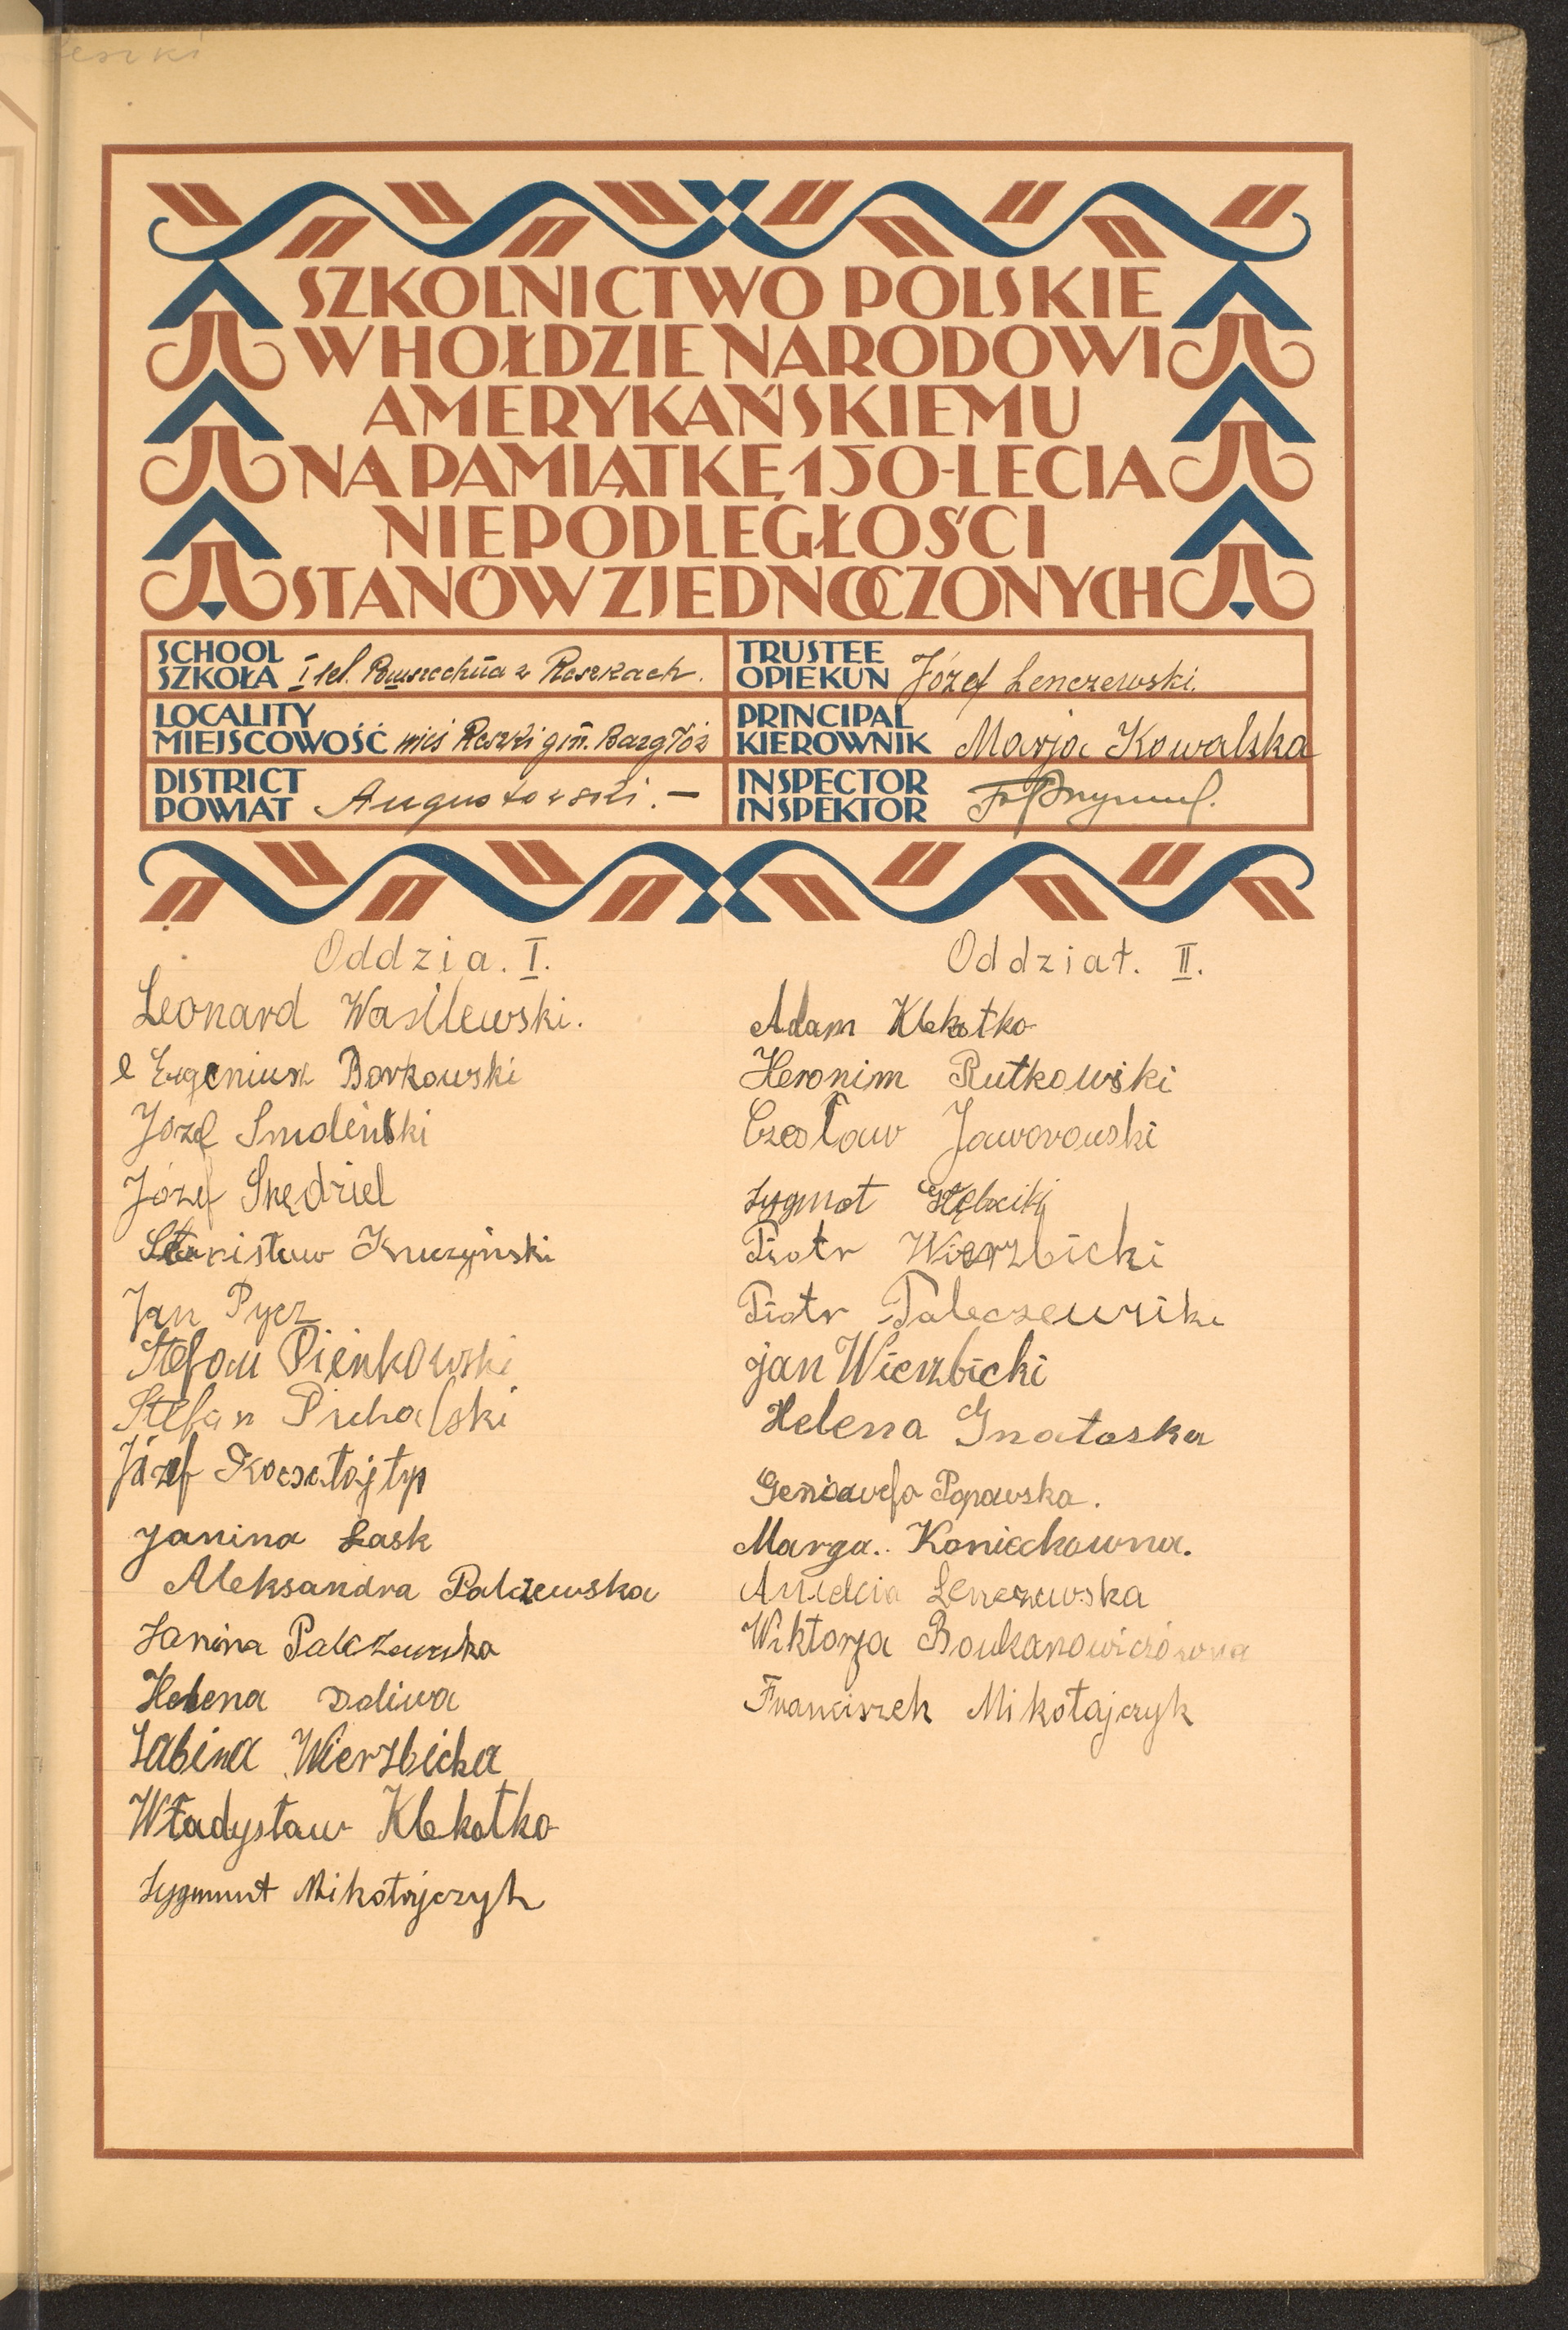 eszki
SZKOLNICTWO POLSKIE
W HOŁDZIE NARODOWI
AMERYKAŃSKIEMU
NA PAMIĄTKĘ 150-LECIA
NIEPODLEGŁOŚCI
STANÓW ZJEDNOCZONYCH
SCHOOL
SZKOŁA I kl. Powszechna w Reszkach.
LOCALITY
MIEJSCOWOŚĆ wieś Reszki gm. Bargłów
DISTRICT
POWIAT Augustowski. —
TRUSTEE
OPIEKUN Józef Lenczewski.
PRINCIPAL
KIEROWNIK Marja Kowalska
INSPECTOR
INSPEKTOR
Oddzia. I.
Leonard Wasilewski.
Eugeniusz Borkowski
Józef Smoleński
Józef Skędziel
Stanisław Kruczyński
Jan Pycz
Stefan Pieńkowski
Stefan Pichalski
Józef
Janina Łask
Aleksandra Palczewska
Janina Palczewska
Helena Doliwa
Sabina Wierzbicka
Władysław Klekotko
Zygmunt Mikołajczyk
Oddział. II.
Adam Klekotko
Heronim Rutkowski
Czesław Jaworowski
Zygmot
Piotr Wierzbicki
Piotr Paleczewski
jan Wierzbicki
Helena Gnatoska
Genowefa Popawska.
Marga.. Konieckowna.
Lenczewska
Wiktorja Boukanowiczówna
Franciszek Mikołajczyk